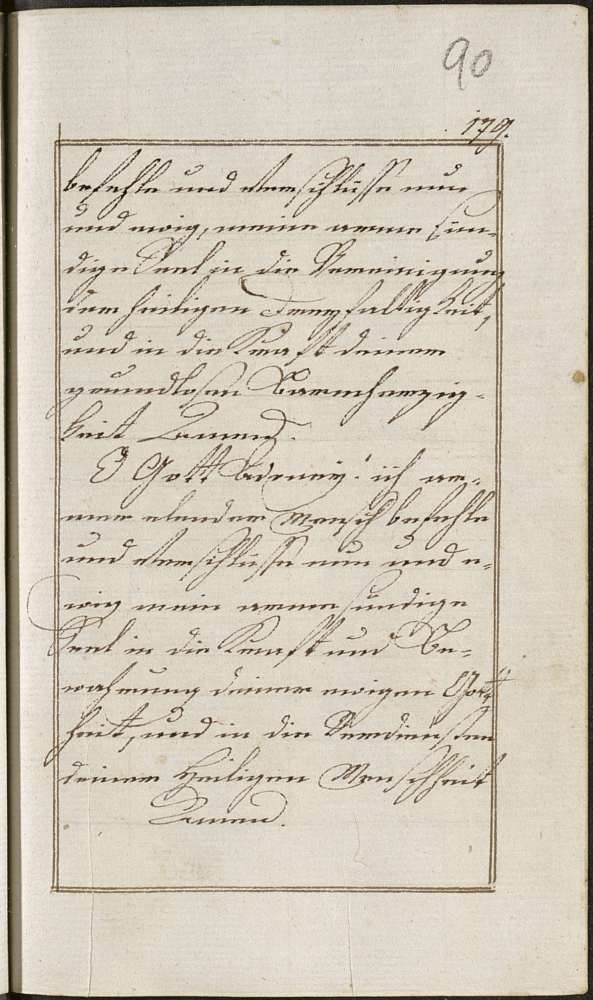 90
179.
befehle und verschlüsse nun
und ewig, meine arme sün-
dige Seel in die Vereinigung
der heiligen Dreyfaltigkeit,
und in die Kraft deiner
grundlosen Barmherzig-
keit Amen.
O Gott Adonay! ich ar-
mer elender Mensch befehle
und verschlüsse nun und e-
wig mein arme sündige
Seel in die Kraft und Be-
wahrung deiner ewigen Gott-
heit, und in die Verdiensten
deiner Heiligen Menschheit
Amen.